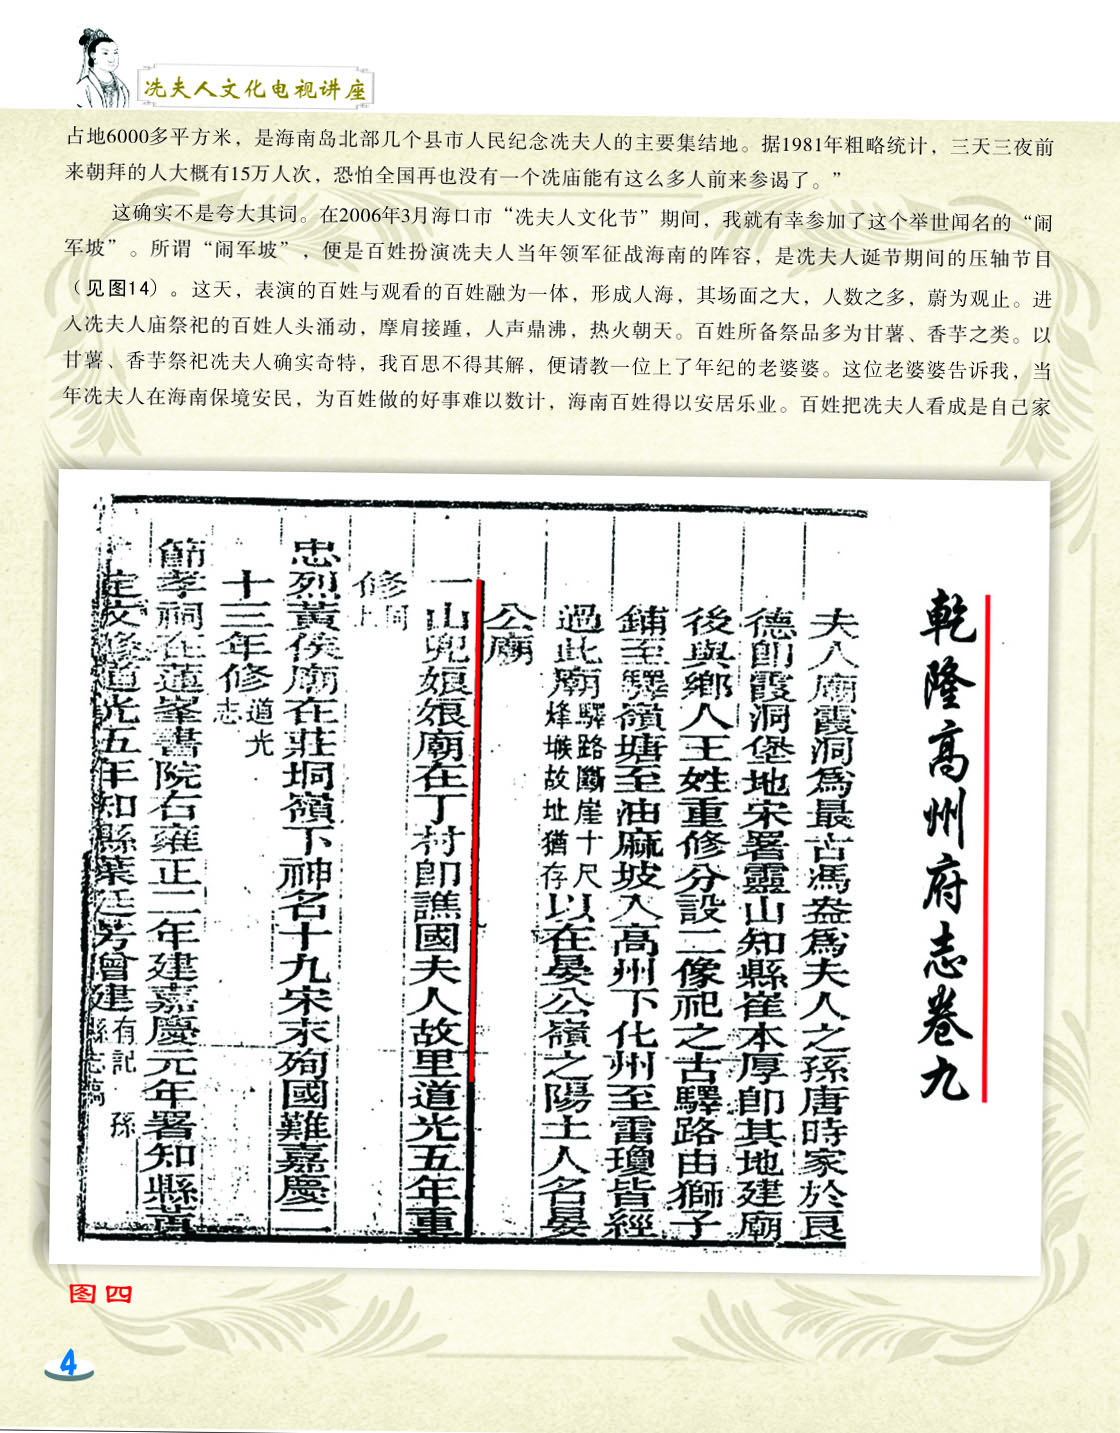 冼夫人文化电视讲座
占地6000多平方米，是海南岛北部几个县市人民纪念冼夫人的主要集结地。据1981年粗略统计，三天三夜前
来朝拜的人大概有15万人次，恐怕全国再也没有一个冼庙能有这么多人前来参谒了。”
这确实不是夸大其词。在2006年3月海口市“冼夫人文化节”期间，我就有幸参加了这个举世闻名的“闹
军坡”。所谓“闹军坡”，便是百姓扮演冼夫人当年领军征战海南的阵容，是冼夫人诞节期间的压轴节目
（见图14）。这天，表演的百姓与观看的百姓融为一体，形成人海，其场面之大，人数之多，蔚为观止。进
入冼夫人庙祭祀的百姓人头涌动，摩肩接踵，人声鼎沸，热火朝天。百姓所备祭品多为甘薯、香芋之类。以
甘薯、香芋祭祀冼夫人确实奇特，我百思不得其解，便请教一位上了年纪的老婆婆。这位老婆婆告诉我，当
年冼夫人在海南保境安民，为百姓做的好事难以数计，海南百姓得以安居乐业。百姓把冼夫人看成是自己家
乾隆高州府志卷九
夫人廟霞洞為最古馮盎為夫人之孫唐時家於良
德卽霞洞堡地宋署靈山知縣崔本厚卽其地建廟
後與鄉人王姓重修分設二像祀之古驛路由獅子
鋪至驛嶺塘至油麻坡入高州下化州至雷瓊皆經
過此廟驛路斷崖十尺烽堠故址猶存以在晏公嶺之陽土人名晏
公廟
一山兜娘娘廟在丁村卽譙國夫人故里道光五年重
修同上
忠烈黃侯廟在莊垌嶺下神名十九宋末殉國難嘉慶二
十三年修道光志
節孝祠在蓮峯書院右雍正二年建嘉慶元年署知縣黃
定文修道光五年知縣葉廷芳增建有記 孫縣志稿
图四
4